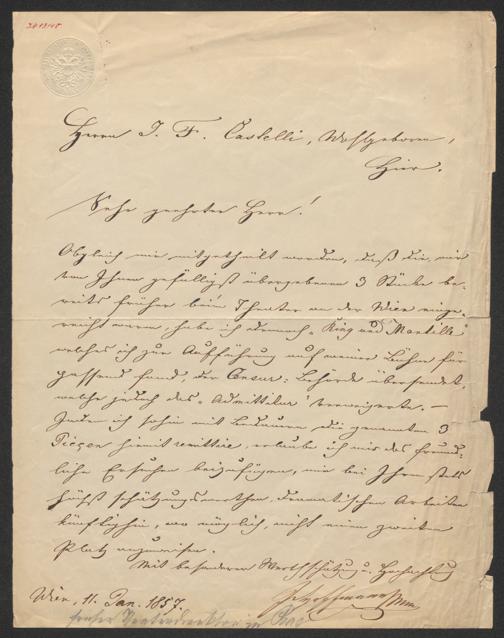 Herrn J. F. Castelli, Wohlgeboren,
Hier.
Sehr geehrter Herr!
Obgleich mir mitgetheilt worden, daß die, mir
von Ihnen gefälligst übergebenen 3 Stücke be-
reits früher beim Theater an der Wien einge-
reicht waren, habe ich dennoch "Ring und Mantille"
welches ich zur Aufführung auf meiner Bühne für
passend fand, der Censur-Behörde übersendet,
welche jedoch das "Admittitur" verweigerte. –
Indem ich sohin mit Bedauern die genannten 3
Piècen hiemit remittire, erlaube ich mir das freund-
liche Ersuchen beizufügen, mir bei Ihren stets
höchst schätzungswerthen dramatischen Arbeiten
künftighin, wo möglich, nicht einen zweiten
Platz anzuweisen.
Mit besonderer Werthschätzung u. Hochachtung
Hoffmann
Wien, 11. Jan. 1857.
früher Theaterdirektor in